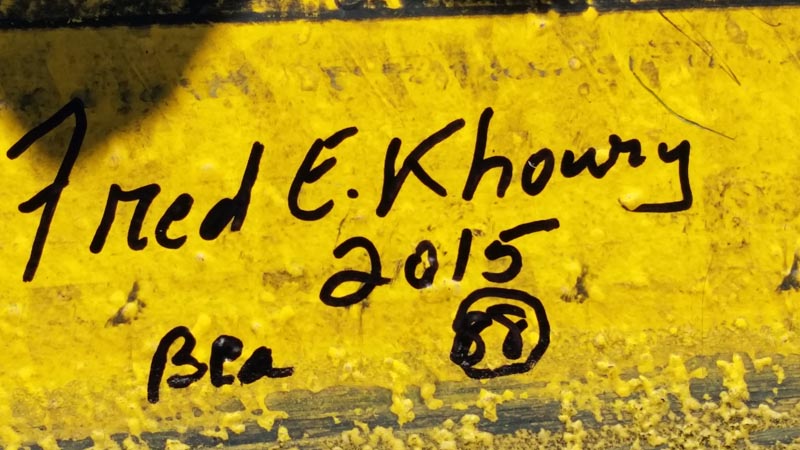 Fred E. Khoury
2015
Bea 88